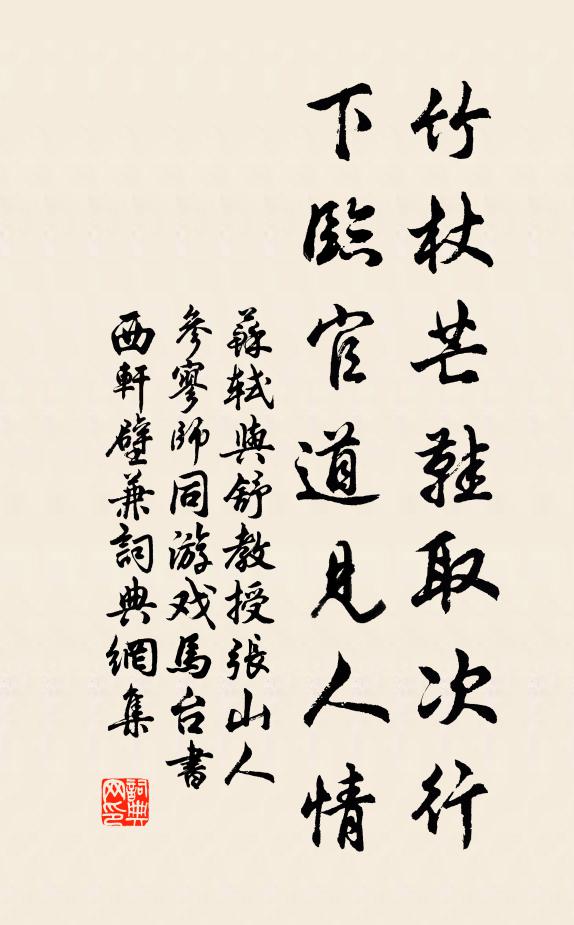 竹杖芒鞋取次行
下臨官道見人情
蘇軾與舒教授張山人
參寥師同游戏馬台書
西軒壁兼詞典網集
詞典网印